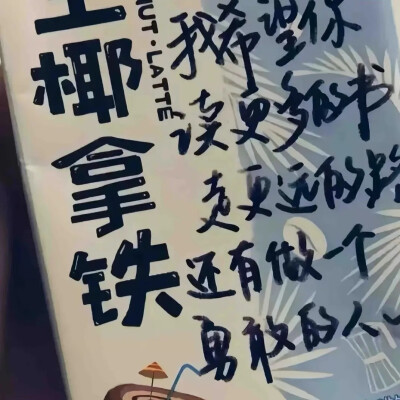 椰拿铁
NUT·LATTÉ
我希望你
读更多的书
走更远的路
还有做一个
勇敢的人